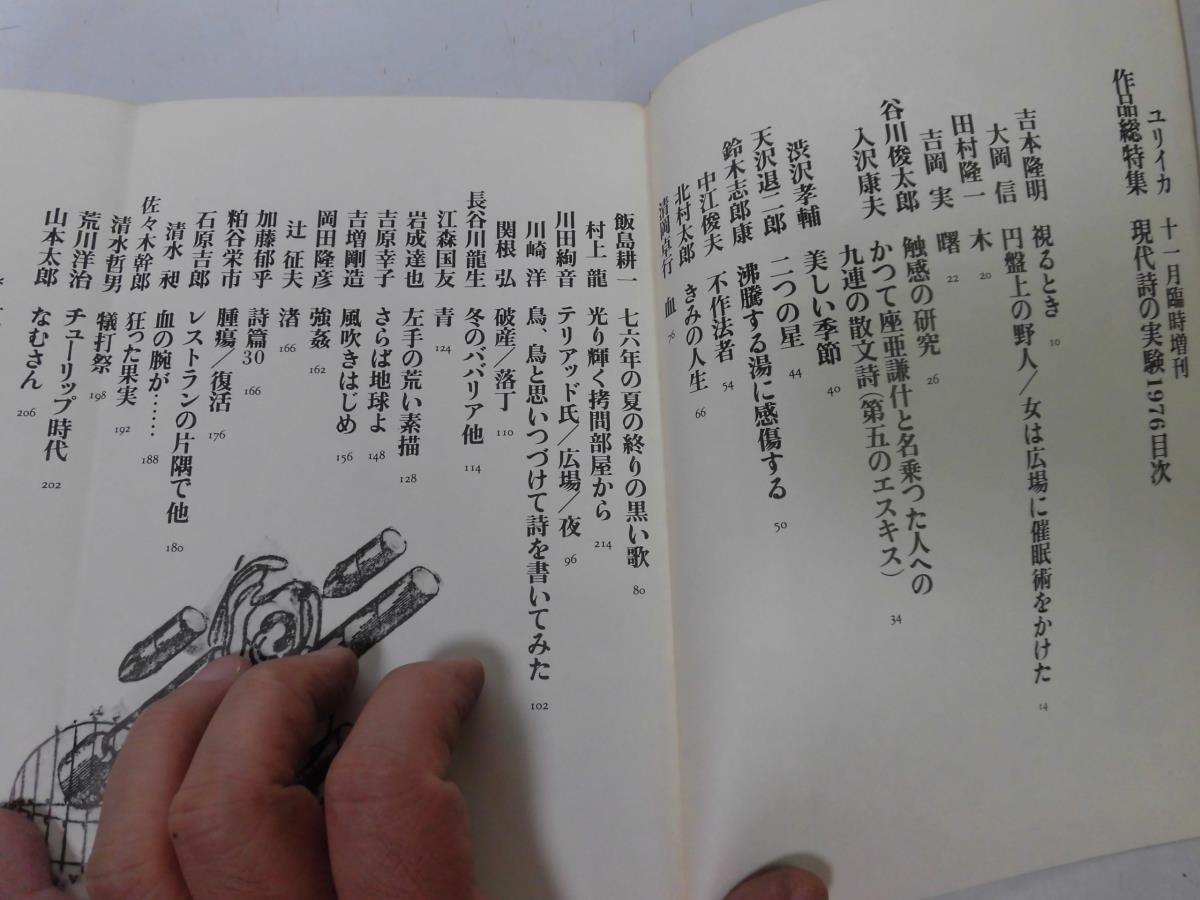 ユリイカ 十一月臨時増刊
作品総特集 現代詩の実験1976目次
吉本隆明 視るとき 10
大岡 信 円盤上の野人／女は広場に催眠術をかけた 14
田村隆一 木 20
吉岡 実 曙 22
谷川俊太郎 触感の研究 26
入沢康夫 かつて座亜謙什と名乗つた人への
九連の散文詩（第五のエスキス） 34
渋沢孝輔 美しい季節 40
天沢退二郎 二つの星 44
鈴木志郎康 沸騰する湯に感傷する 50
中江俊夫 不作法者 54
北村太郎 きみの人生 66
清岡卓行 血 76
飯島耕一 七六年の夏の終りの黒い歌 80
村上 龍 光り輝く拷問部屋から 214
川田絢音 テリアッド氏／広場／夜 96
川崎 洋 鳥、鳥と思いつづけて詩を書いてみた 102
関根 弘 破産／落丁 110
長谷川龍生 冬のババリア他 114
江森国友 青 124
岩成達也 左手の荒い素描 128
吉原幸子 さらば地球よ 148
吉増剛造 風吹きはじめ 156
岡田隆彦 強姦 162
辻 征夫 渚 166
加藤郁乎 詩篇30 166
粕谷栄市 腫瘍／復活 176
石原吉郎 レストランの片隅で他 180
清水 昶 血の腕が…… 188
佐々木幹郎 狂った果実 192
清水哲男 犠打祭 198
荒川洋治 チューリップ時代 202
山本太郎 なむさん 206